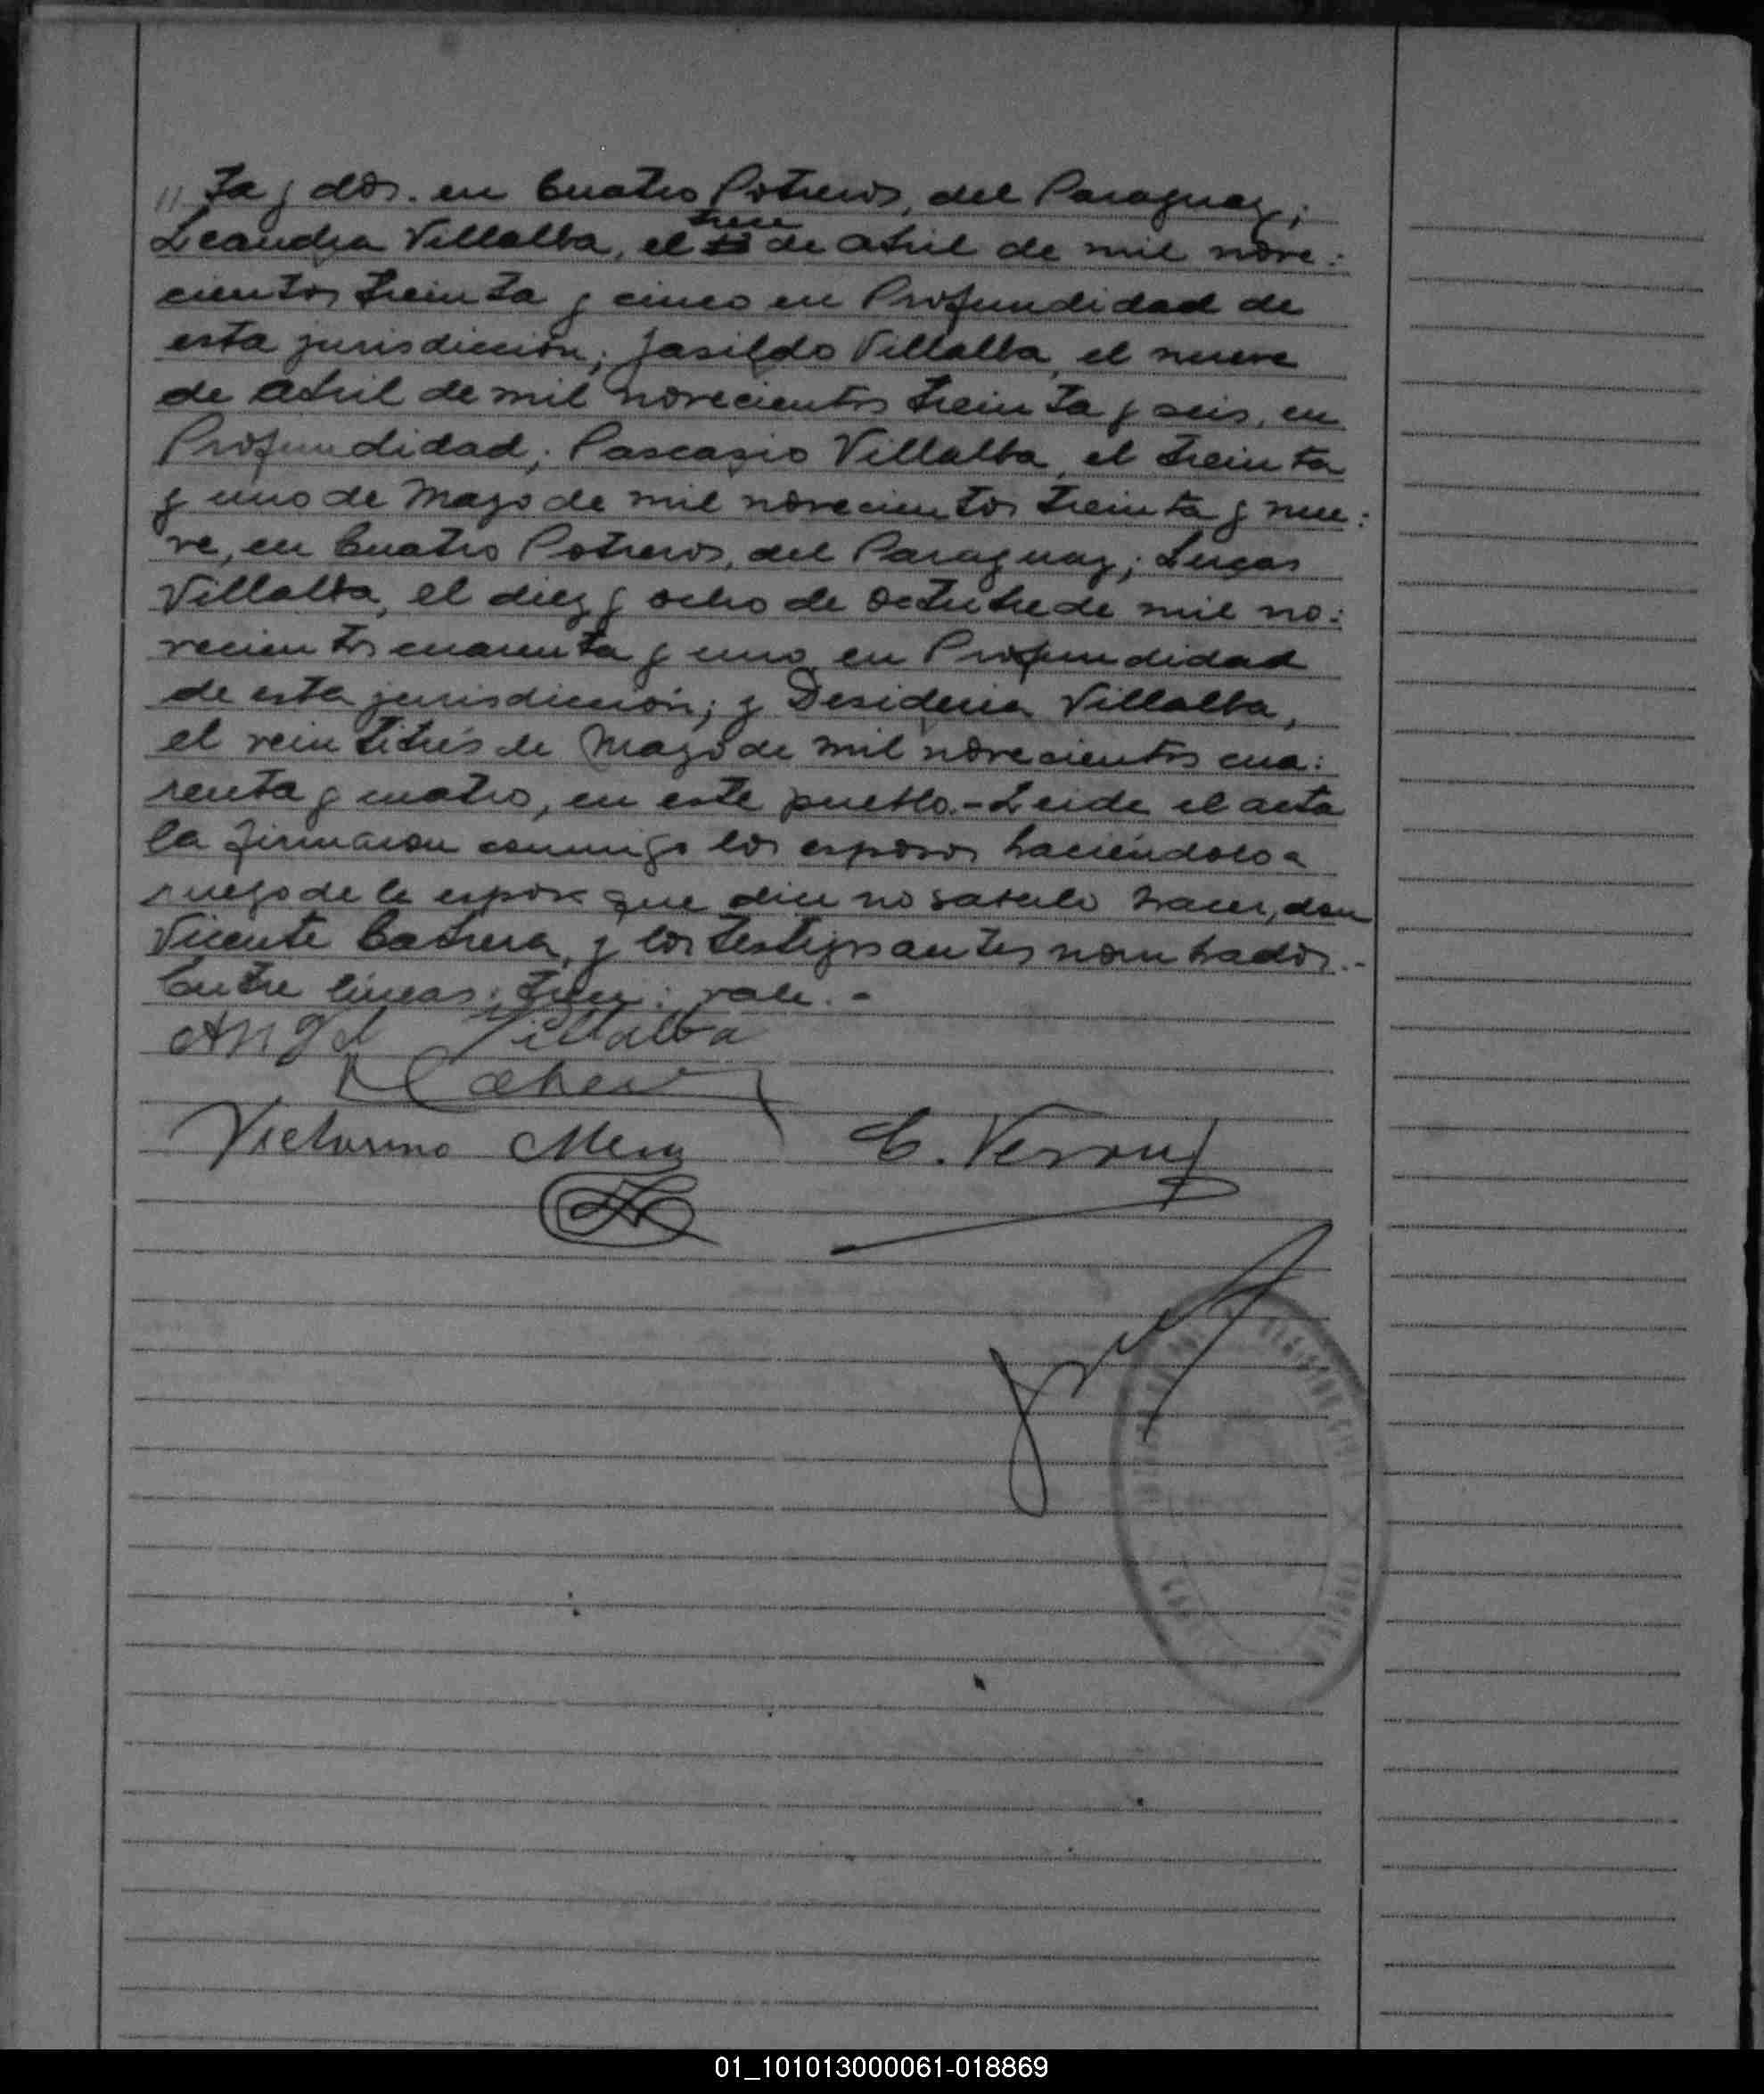 // ta y dos. en Cuatro Potreros, del Paraguay;
trece
Leandra Villalba, el de Abril de mil nove:
cientos treinta y cinco en Profundidad de
esta jurisdicción; Jasildo Villalba, el nueve
de Abril de mil novecientos treinta y seis, en
Profundidad; Pascasio Villalba, el treinta
y uno de Mayo de mil novecientos treinta y nue:
ve, en Cuatro Potreros, del Paraguay; Lucas
Villalba, el diez y ocho de Octubre de mil no:
vecientos cuarenta y uno en Profundidad
de esta jurisdicción; y Desideria Villalba,
el veintitrés de Mayo de mil novecientos cua:
renta y cuatro, en este pueblo.- Leida el acta
la firmaron conmigo los esposos haciéndolo a
ruego de la esposa que dice no saberlo hacer, don
Vicente Cabrera, y los testigos antes nombrados.-
Entre líneas: trece: vale.-
Angel Villalba
Victorino Mesa
REGISTRO CIVIL